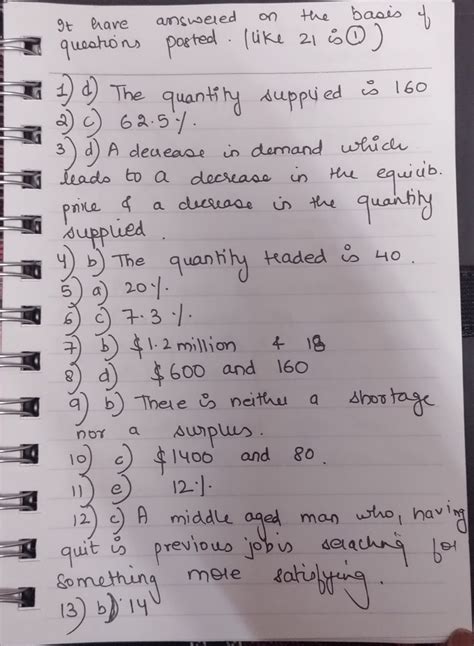 It have answered on the basis of
questions posted. (like 21 is ①)
1) d) The quantity supplied is 160
2) c) 62.5%.
3) d) A decrease in demand which
leads to a decrease in the equilib.
price & a decrease in the quantity
supplied.
4) b) The quantity traded is 40.
5) a) 20%.
6) c) 7.3%.
7) b) $1.2 million & 18
8) d) $600 and 160
9) b) There is neither a shortage
nor a surplus.
10) c) $1400 and 80.
11) e) 12%.
12) c) A middle aged man who, having
quit is previous jobis seraching for
something more satisfying.
13) b) 14